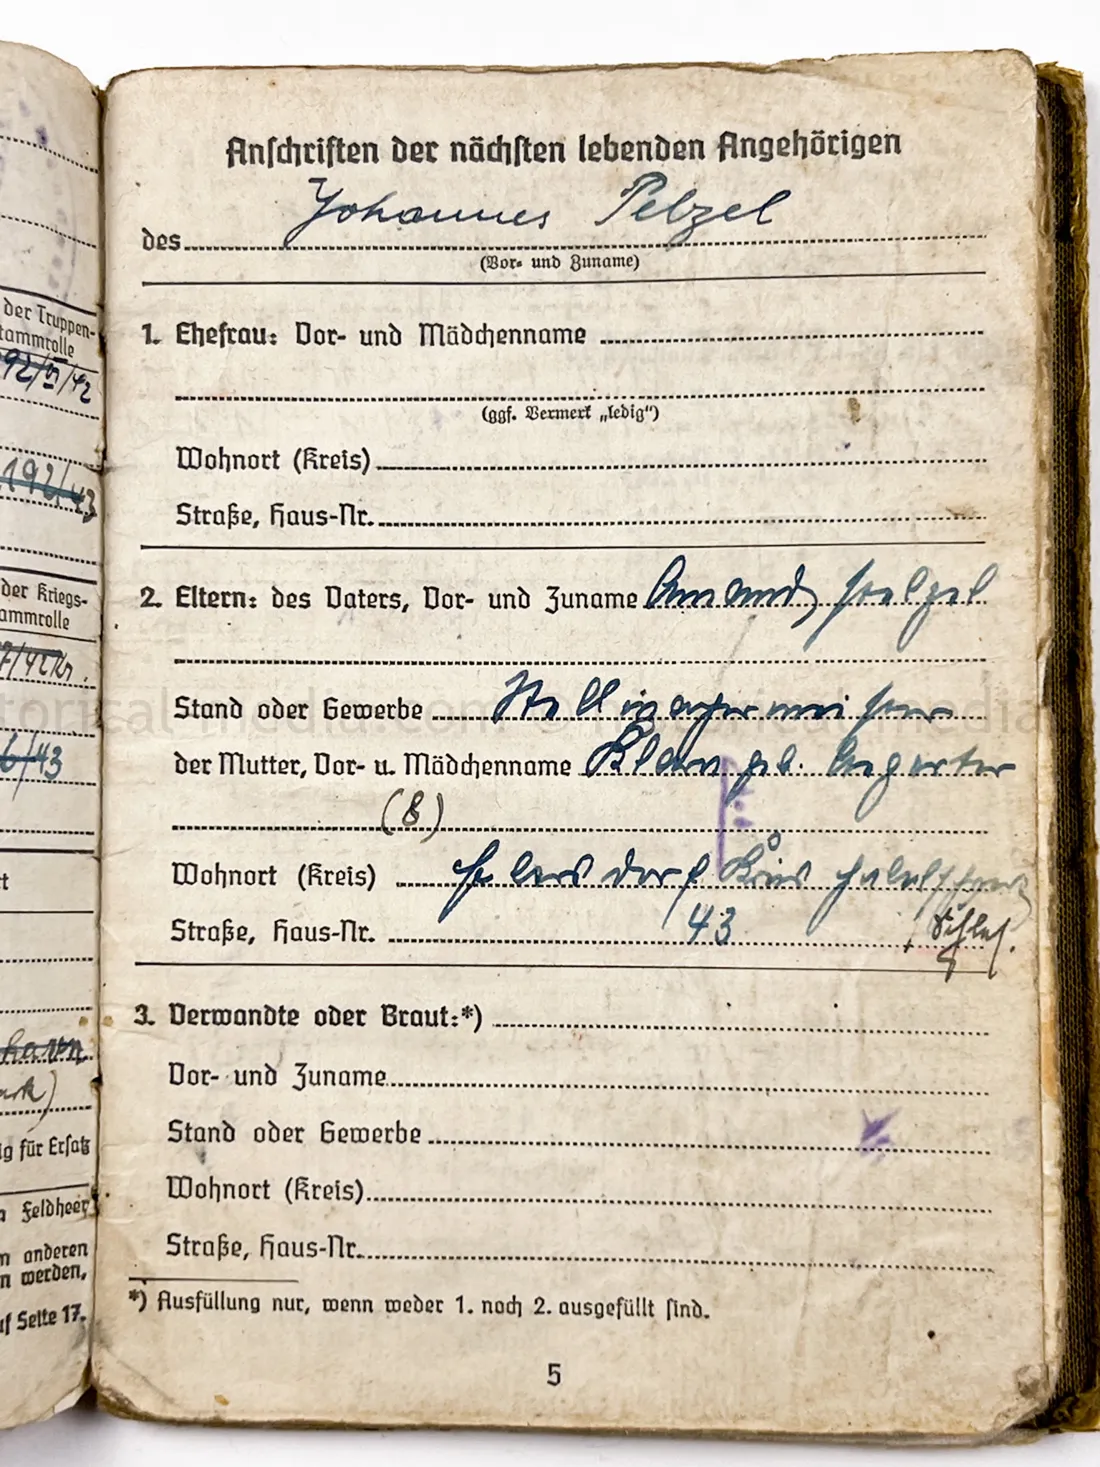 der Truppen-
tammrolle
92/5/42
192/43
der Kriegs-
ammrolle
6/43
rt
haven
ark)
ig für Ersatz
n Feldheer
m anderen
n werden,
uf Seite 17.
Anschriften der nächsten lebenden Angehörigen
des Johannes Pelzel
(Vor- und Zuname)
1. Ehefrau: Vor- und Mädchenname
(ggf. Vermerk „ledig“)
Wohnort (Kreis)
Straße, Haus-Nr.
2. Eltern: des Vaters, Vor- und Zuname Amand, Pelzel
Stand oder Gewerbe
der Mutter, Vor- u. Mädchenname Klara geb.
(8)
Wohnort (Kreis) Kreis Habelschwerdt
Straße, Haus-Nr. 43 Schles.
3. Verwandte oder Braut:*)
Vor- und Zuname
Stand oder Gewerbe
Wohnort (Kreis)
Straße, Haus-Nr.
*) Ausfüllung nur, wenn weder 1. noch 2. ausgefüllt sind.
5